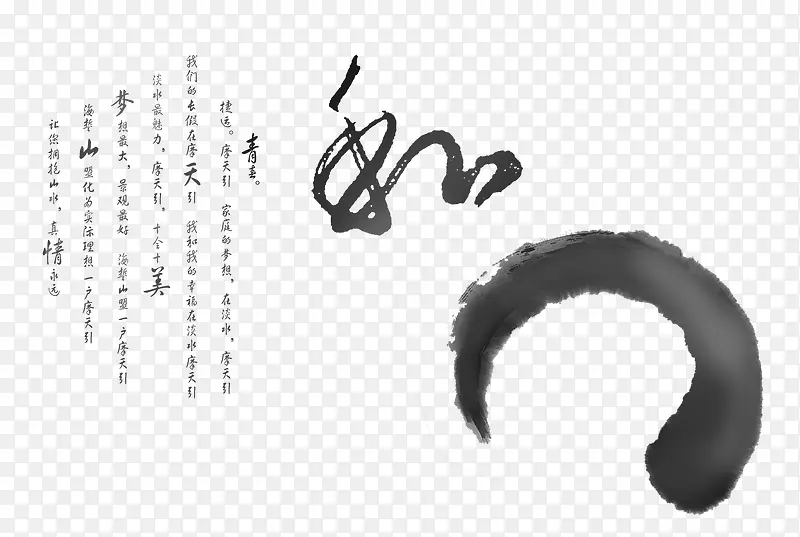 和
青春。
捷运。摩天引 家庭的梦想，在淡水，摩天引
我们的长假在摩天引 我和我的幸福在淡水摩天引
淡水最魅力，摩天引。十全十美
梦想最大，景观最好 海誓山盟一户摩天引
海誓山盟化为实际理想一户摩天引
让您拥抱山水，真情永远